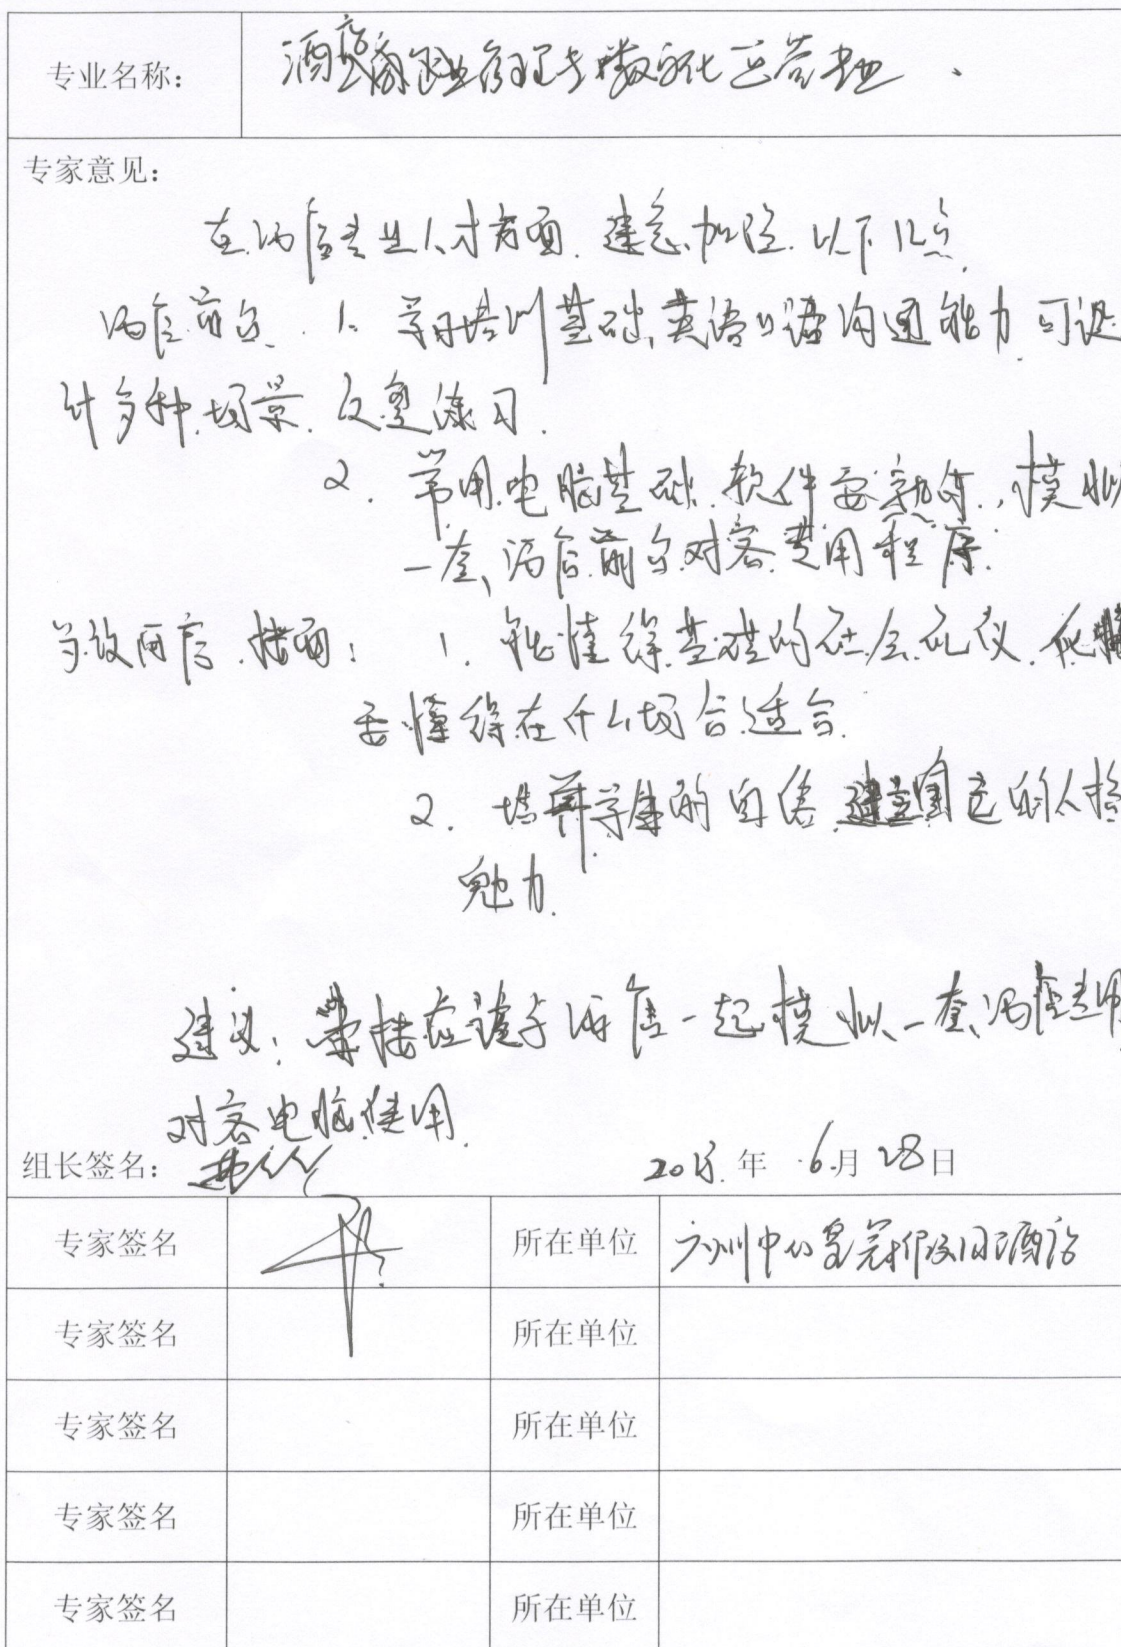 专业名称： 酒店 管理与数字化运营专业
专家意见：
在酒店专业人才方面，建议加强以下几点
酒店前台 1. 学习培训基础英语口语沟通能力，可设
计多种场景，反复练习。
2. 常用电脑基础软件要熟悉，模拟
一套酒店前台对客费用程序。
1. 能懂得基础的社会礼仪，
要懂得在什么场合适合。
2. 培养学生的自信，建立固定的人格
魅力。
建议： 一起模拟一套酒店专用
对客电脑使用。
组长签名： 年 6月 28日
专家签名 所在单位 广州中心皇冠假日酒店
专家签名 所在单位
专家签名 所在单位
专家签名 所在单位
专家签名 所在单位